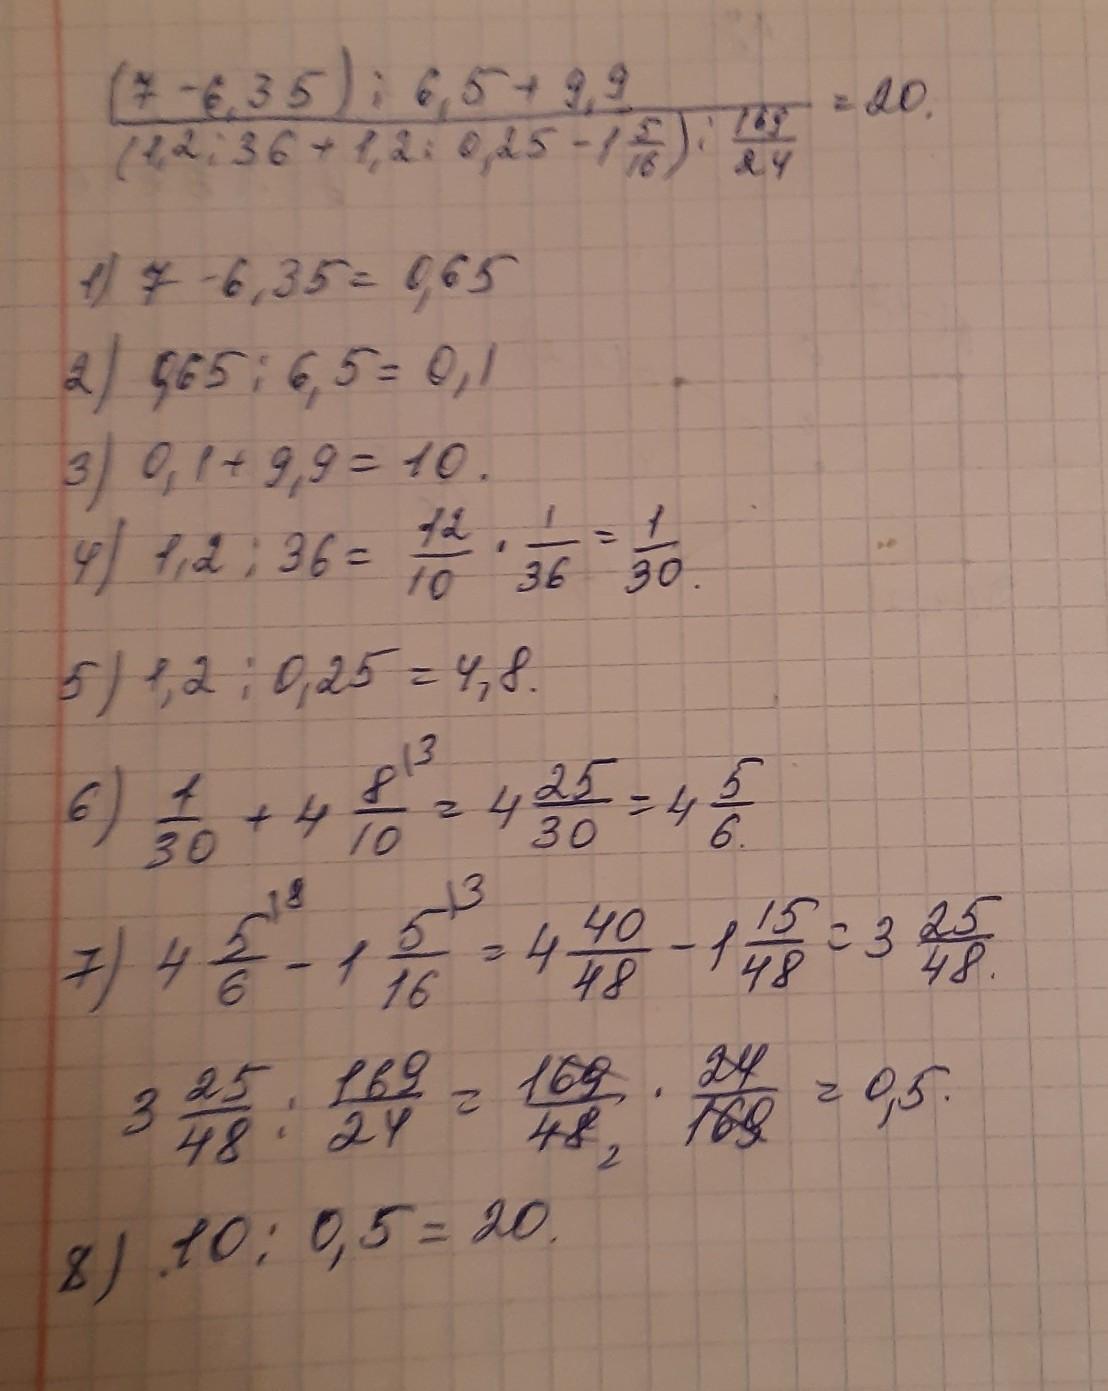 (7 - 6,35) : 6,5 + 9,9
(1,2 : 36 + 1,2 : 0,25 - 1 5/16) : 169/24 = 20.
1) 7 - 6,35 = 0,65
2) 0,65 : 6,5 = 0,1
3) 0,1 + 9,9 = 10.
4) 1,2 : 36 = 12/10 · 1/36 = 1/30.
5) 1,2 : 0,25 = 4,8.
6) 1/30 + 4 8/10 \3 = 4 25/30 = 4 5/6.
7) 4 5/6 \8 - 1 5/16 \3 = 4 40/48 - 1 15/48 = 3 25/48.
3 25/48 : 169/24 = 169/48 2 · 24/169 = 0,5.
8) 10 : 0,5 = 20.